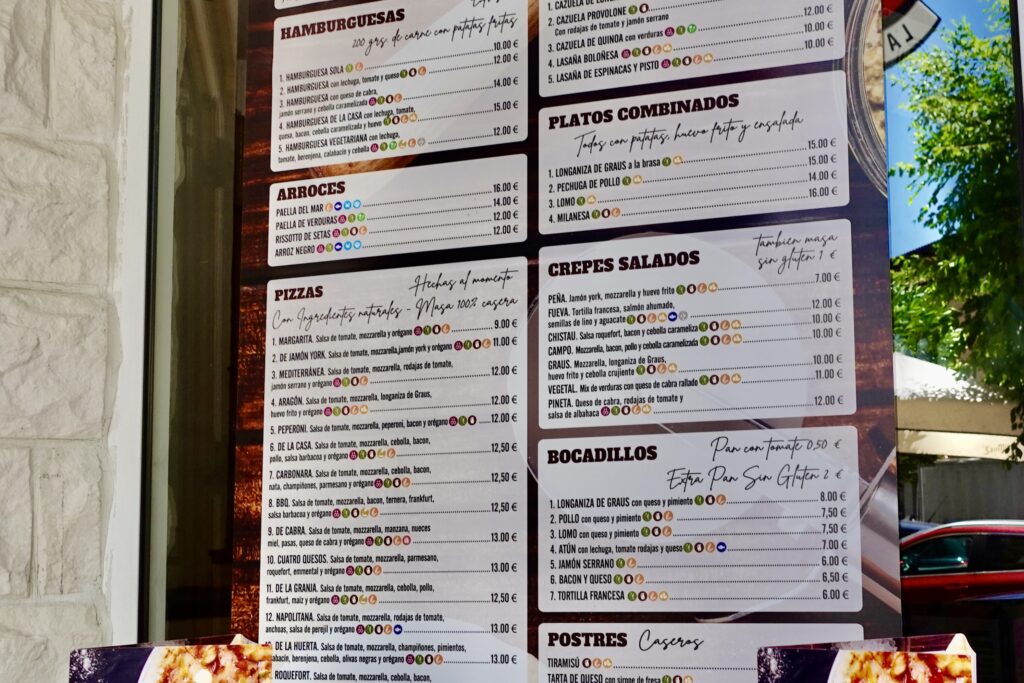 HAMBURGUESAS
200 grs. de carne con patatas fritas
1. HAMBURGUESA SOLA 10.00 €
2. HAMBURGUESA con lechuga, tomate y queso 12.00 €
3. HAMBURGUESA con queso de cabra,
jamón serrano y cebolla caramelizada 14.00 €
4. HAMBURGUESA DE LA CASA con lechuga, tomate,
queso, bacon, cebolla caramelizada y huevo 15.00 €
5. HAMBURGUESA VEGETARIANA con lechuga,
tomate, berenjena, calabacín y cebolla 12.00 €
ARROCES
PAELLA DEL MAR 16.00 €
PAELLA DE VERDURAS 14.00 €
RISSOTTO DE SETAS 12.00 €
ARROZ NEGRO 12.00 €
PIZZAS
Hechas al momento
Con Ingredientes naturales - Masa 100% casera
1. MARGARITA. Salsa de tomate, mozzarella y orégano 9.00 €
2. DE JAMÓN YORK. Salsa de tomate, mozzarella, jamón york y orégano 11.00 €
3. MEDITERRÁNEA. Salsa de tomate, mozzarella, rodajas de tomate,
jamón serrano y orégano 12.00 €
4. ARAGÓN. Salsa de tomate, mozzarella, longaniza de Graus,
huevo frito y orégano 12.00 €
5. PEPERONI. Salsa de tomate, mozzarella, peperoni, bacon y orégano 12.00 €
6. DE LA CASA. Salsa de tomate, mozzarella, cebolla, bacon,
pollo, salsa barbacoa y orégano 12,50 €
7. CARBONARA. Salsa de tomate, mozzarella, cebolla, bacon,
nata, champiñones, parmesano y orégano 12,50 €
8. BBQ. Salsa de tomate, mozzarella, bacon, ternera, frankfurt,
salsa barbacoa y orégano 12,50 €
9. DE CABRA. Salsa de tomate, mozzarella, manzana, nueces
miel, pasas, queso de cabra y orégano 13.00 €
10. CUATRO QUESOS. Salsa de tomate, mozzarella, parmesano,
roquefort, emmental y orégano 13.00 €
11. DE LA GRANJA. Salsa de tomate, mozzarella, cebolla, pollo,
frankfurt, maiz y orégano 12,50 €
12. NAPOLITANA. Salsa de tomate, mozzarella, rodajas de tomate,
anchoas, salsa de perejil y orégano 13.00 €
DE LA HUERTA. Salsa de tomate, mozzarella, champiñones, pimientos,
cebolla, olivas negras y orégano 13.00 €
ROQUEFORT. Salsa de tomate, mozzarella, cebolla, bacon,
2. CAZUELA PROVOLONE
Con rodajas de tomate y jamón serrano 12.00 €
3. CAZUELA DE QUINOA con verduras 10.00 €
4. LASAÑA BOLOÑESA 10.00 €
5. LASAÑA DE ESPINACAS Y PISTO 10.00 €
PLATOS COMBINADOS
Todos con patatas, huevo frito y ensalada
1. LONGANIZA DE GRAUS a la brasa 15.00 €
2. PECHUGA DE POLLO 15.00 €
3. LOMO 14.00 €
4. MILANESA 16.00 €
CREPES SALADOS
Tambien masa
sin gluten 1 €
PEÑA. Jamón york, mozzarella y huevo frito 7.00 €
FUEVA. Tortilla francesa, salmón ahumado,
semillas de lino y aguacate 12.00 €
CHISTAU. Salsa roquefort, bacon y cebolla carameliza 10.00 €
CAMPO. Mozzarella, bacon, pollo y cebolla caramelizada 10.00 €
GRAUS. Mozzarella, longaniza de Graus,
huevo frito y cebolla crujiente 10.00 €
VEGETAL. Mix de verduras con queso de cabra rallado 11.00 €
PINETA. Queso de cabra, rodajas de tomate y
salsa de albahaca 12.00 €
BOCADILLOS
Pan con tomate 0,50 €
Extra Pan Sin Gluten 2 €
1. LONGANIZA DE GRAUS con queso y pimiento 8.00 €
2. POLLO con queso y pimiento 7,50 €
3. LOMO con queso y pimiento 7,50 €
4. ATÚN con lechuga, tomate rodajas y queso 7.00 €
5. JAMÓN SERRANO 6.00 €
6. BACON Y QUESO 6,50 €
7. TORTILLA FRANCESA 6.00 €
POSTRES Caseros
TIRAMISÚ
TARTA DE QUESO con sirope de fresa
LA